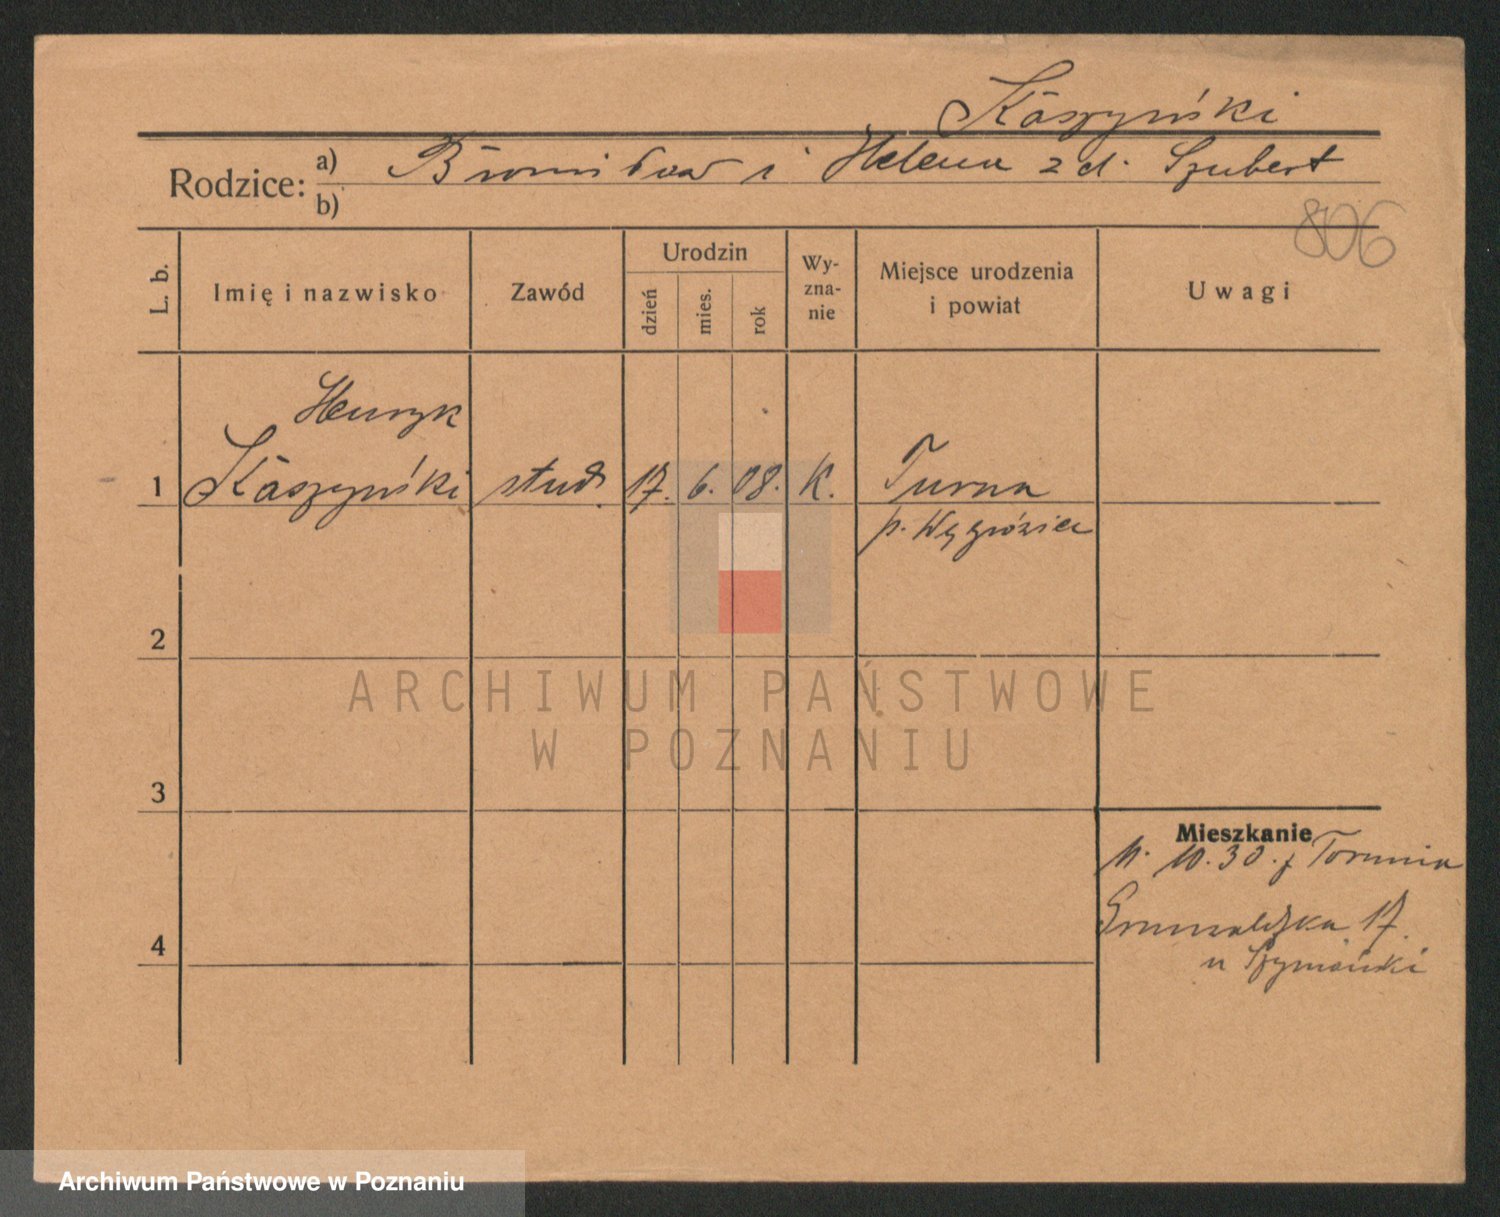 Kaszyński
Rodzice: a) Bronisław i Helena z d. Szubert
b)
806
L. b.
Imię i nazwisko
Zawód
Urodzin
dzień
mies.
rok
Wy-
zna-
nie
Miejsce urodzenia
i powiat
Uwagi
Henryk
1 Kaszyński stud. 17. 6. 08. K. Turna
p. Węgrów
2
3
4
Mieszkanie
10.30. z Torunia
Grunwaldzka 17.
u Szymański
ARCHIWUM PAŃSTWOWE
W POZNANIU
Archiwum Państwowe w Poznaniu